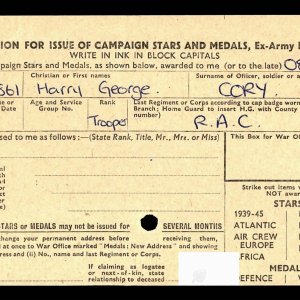 ION FOR ISSUE OF CAMPAIGN STARS AND MEDALS, Ex-Army
WRITE IN INK IN BLOCK CAPITALS
paign Stars and Medals, as shown below, awarded to me (or to the late)
Christian or First names
Surname of Officer, soldier or a
361 Harry George. CORY.
e or Date
Age and Service Group No.
Rank
Last Regiment or Corps according to cap badge worn
Branch: Home Guard to insert H.G. with County number)
Trooper R.A.C.
ssed to me as follows:—(State Rank, Title, Mr., Mrs. or Miss)
This Box for War Offi
Strike out Items
NOT
STARS
1939-45
ATLANTIC
AIR CREW
EUROPE
AFRICA
MEDAL
DEFENCE
STARS or MEDALS may not be issued for SEVERAL MONTHS
change your permanent address before receiving them,
at once to War Office marked "Medals: New Address" and showing
(ii) No., name and last Regiment or Corps.
If claiming as legatee or next-of-kin, state relationship to deceased